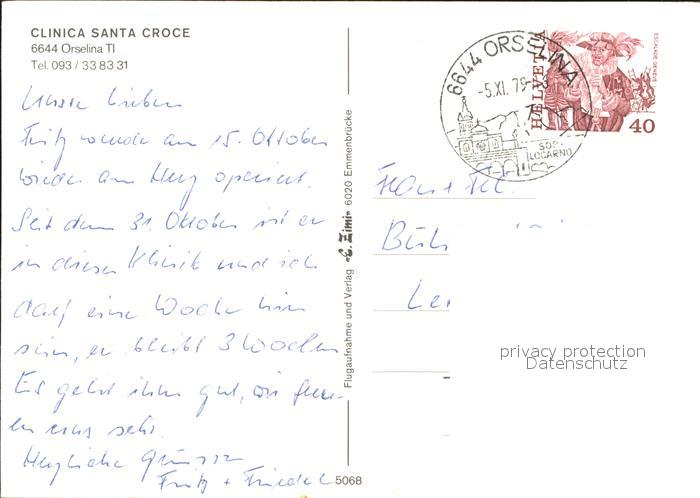 CLINICA SANTA CROCE
6644 Orselina TI
Tel. 093 / 33 83 31
Unsere Lieben
Fritz wurde am 15. Oktober
wieder am Herz operiert.
Seit dem 31. Oktober ist er
in dieser Klinik und ich
darf eine Woche hier
sein, er bleibt 3 Wochen
Es geht ihm gut, wir freu-
en uns sehr.
Herzliche Grüsse
Fritz + Friedel
Flugaufnahme und Verlag «E. Zimi» 6020 Emmenbrücke
5068
6644 ORSELINA
-5.XI. 79-
SOPRA
LOCARNO
HELVETIA
ESCALADE GENEVE
40
privacy protection
Datenschutz